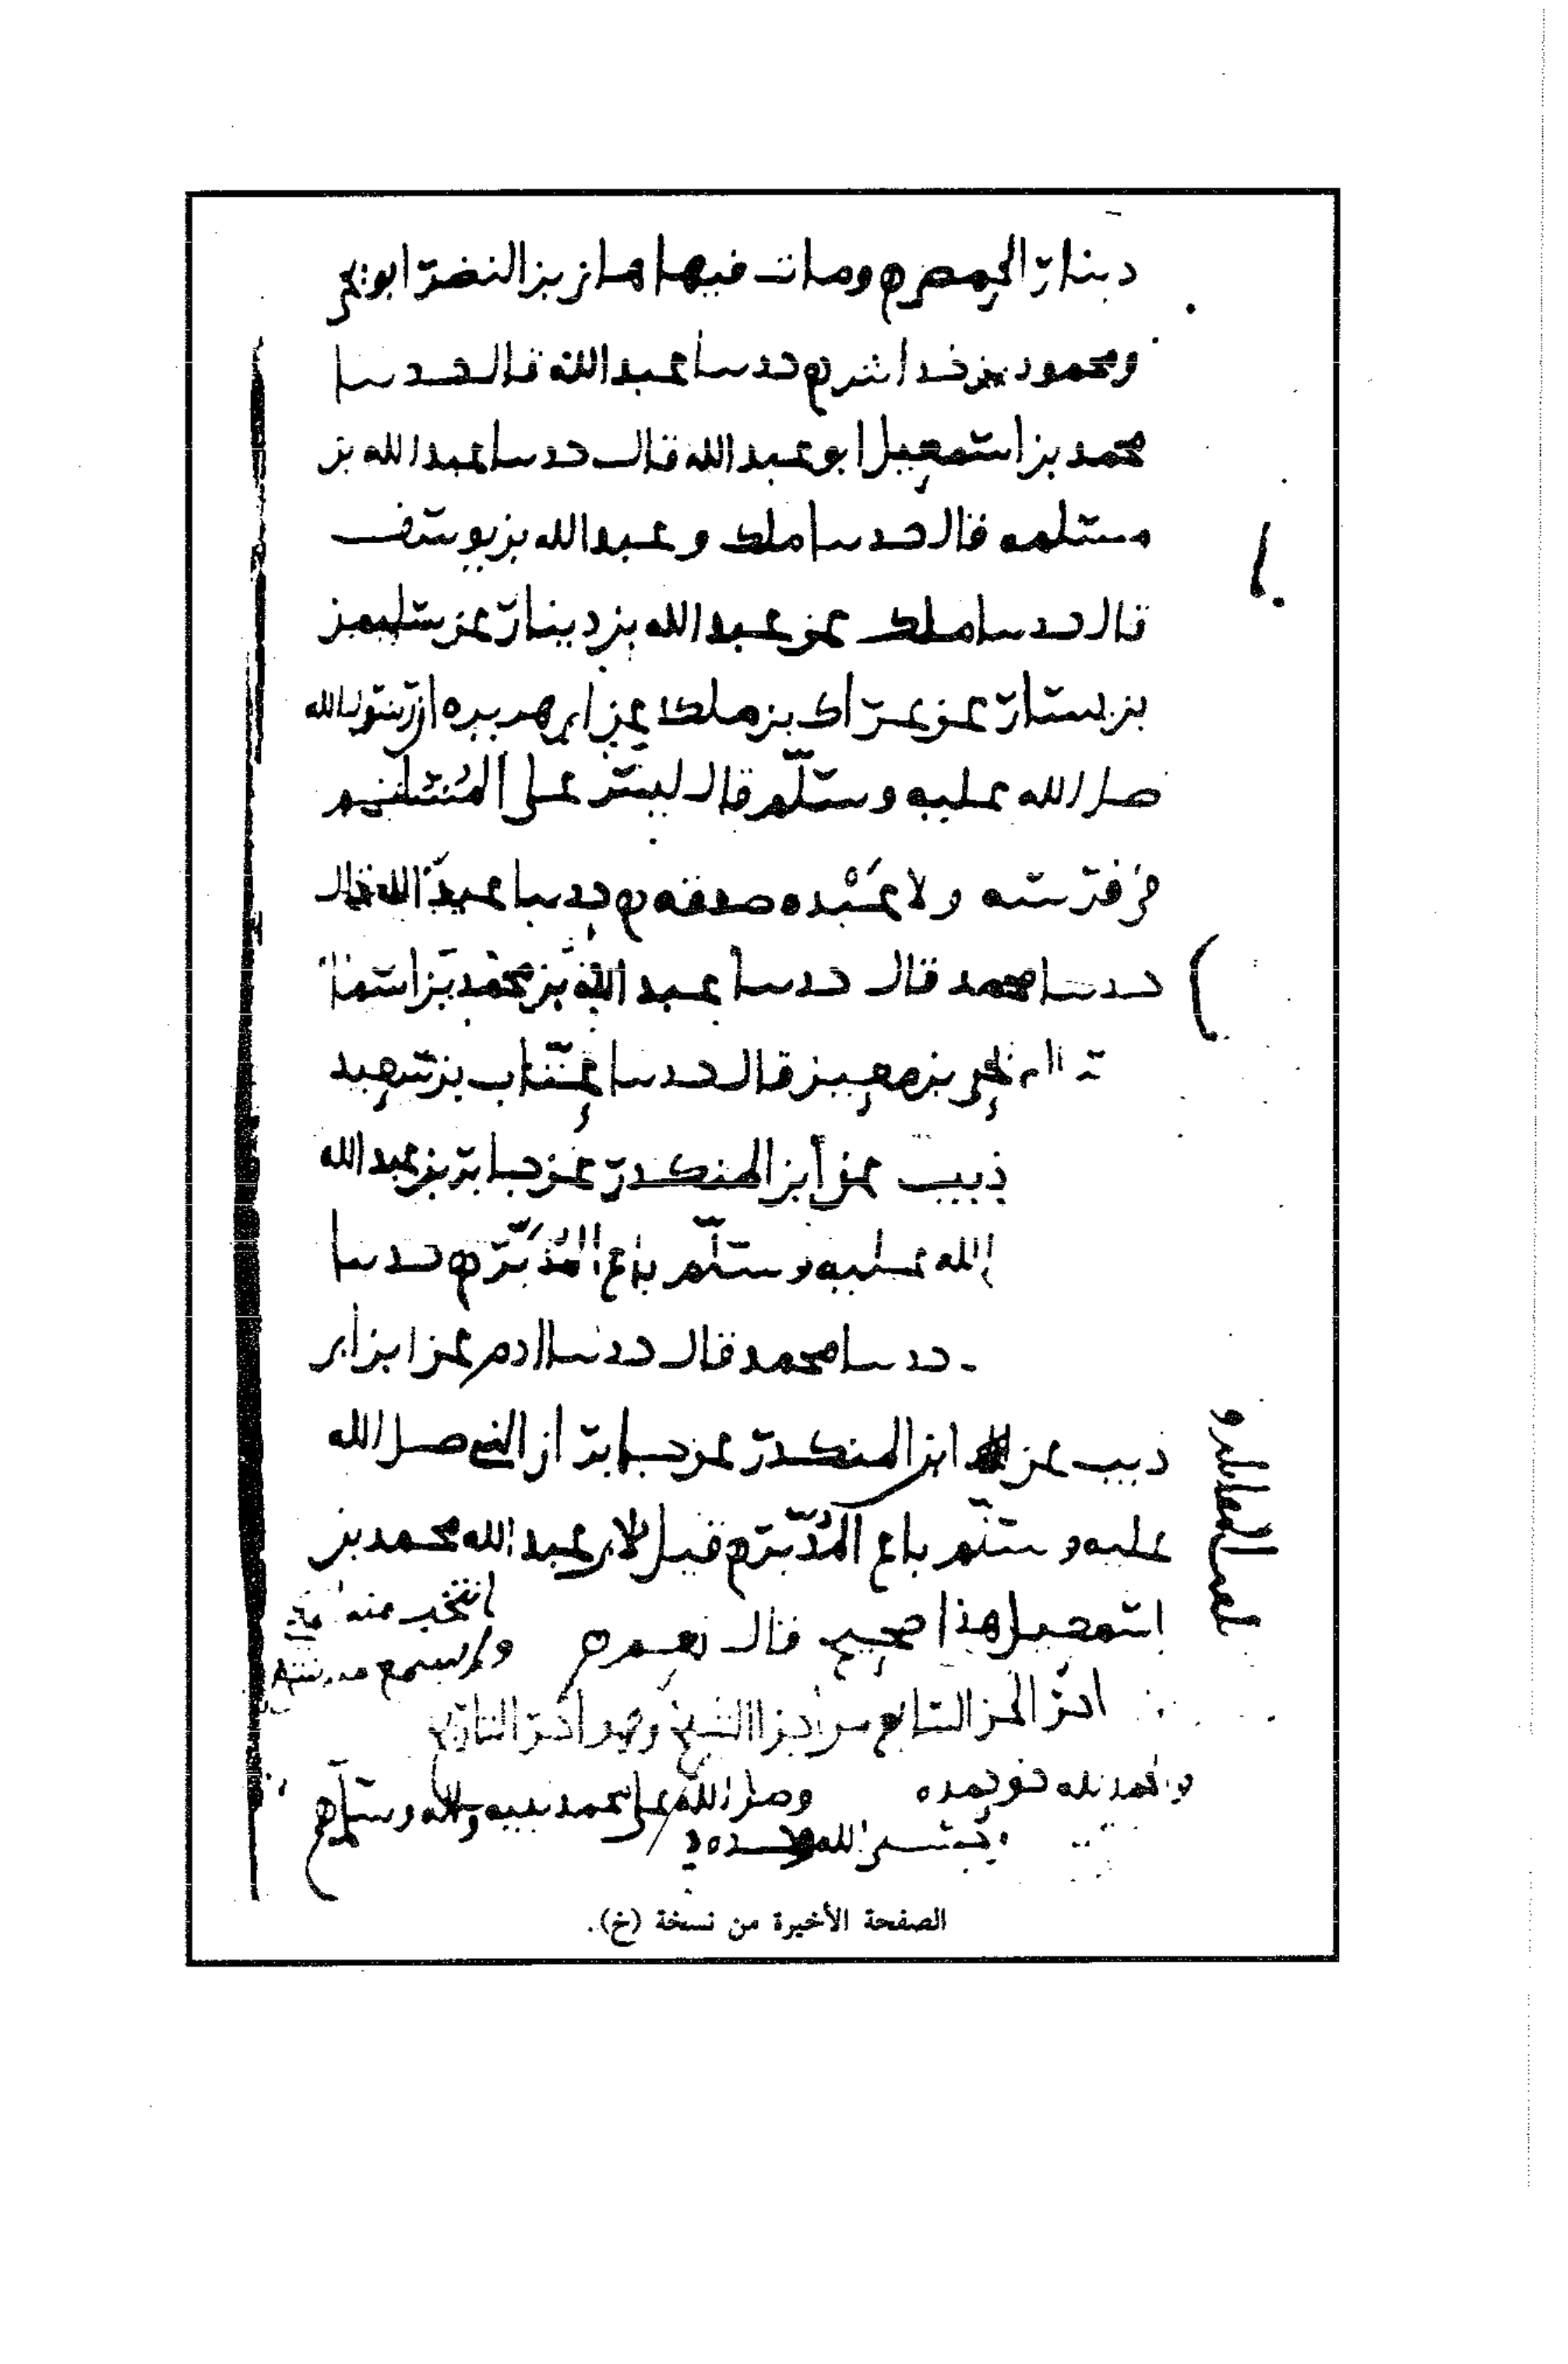 دينار الحمصي ومات فيها هانئ بن النضر ابو يحيى
ومحمود بن خداش حدثنا عبد الله قال حدثنا
محمد بن اسمعيل ابو عبد الله قال حدثنا عبد الله بن
مسلمه قال حدثنا ملك وعبد الله بن يوسف
قال حدثنا ملك عن عبد الله بن دينار عن سليمن
بن يسار عن عراك بن ملك عن ابي هريره ان رسول الله
صلى الله عليه وسلم قال ليس على المسلم
في فرسه ولا عبده صدقه حدثنا عبد الله قال
حدثنا محمد قال حدثنا عبد الله بن محمد بن اسما
بن معين قال حدثنا عتاب بن سعيد
ذييب عن ابن المنكدر عن جابر بن عبد الله
الله عليه وسلم باع المدبر حدثنا
حدثنا محمد قال حدثنا ادم عن ابن ابي
ذيب عن ابن المنكدر عن جابر ان النبي صلى الله
عليه وسلم باع المدبر قيل لابي عبد الله محمد بن
اسمعيل هذا صحيح قال نعم
انتخب منه
ولم يسمع
اخر الجز السابع من اجزا الشيخ وهو اخر التاريخ
والحمد لله حق حمده وصلى الله على محمد نبيه واله وسلم
الله وحده
الصفحة الأخيرة من نسخة (خ).